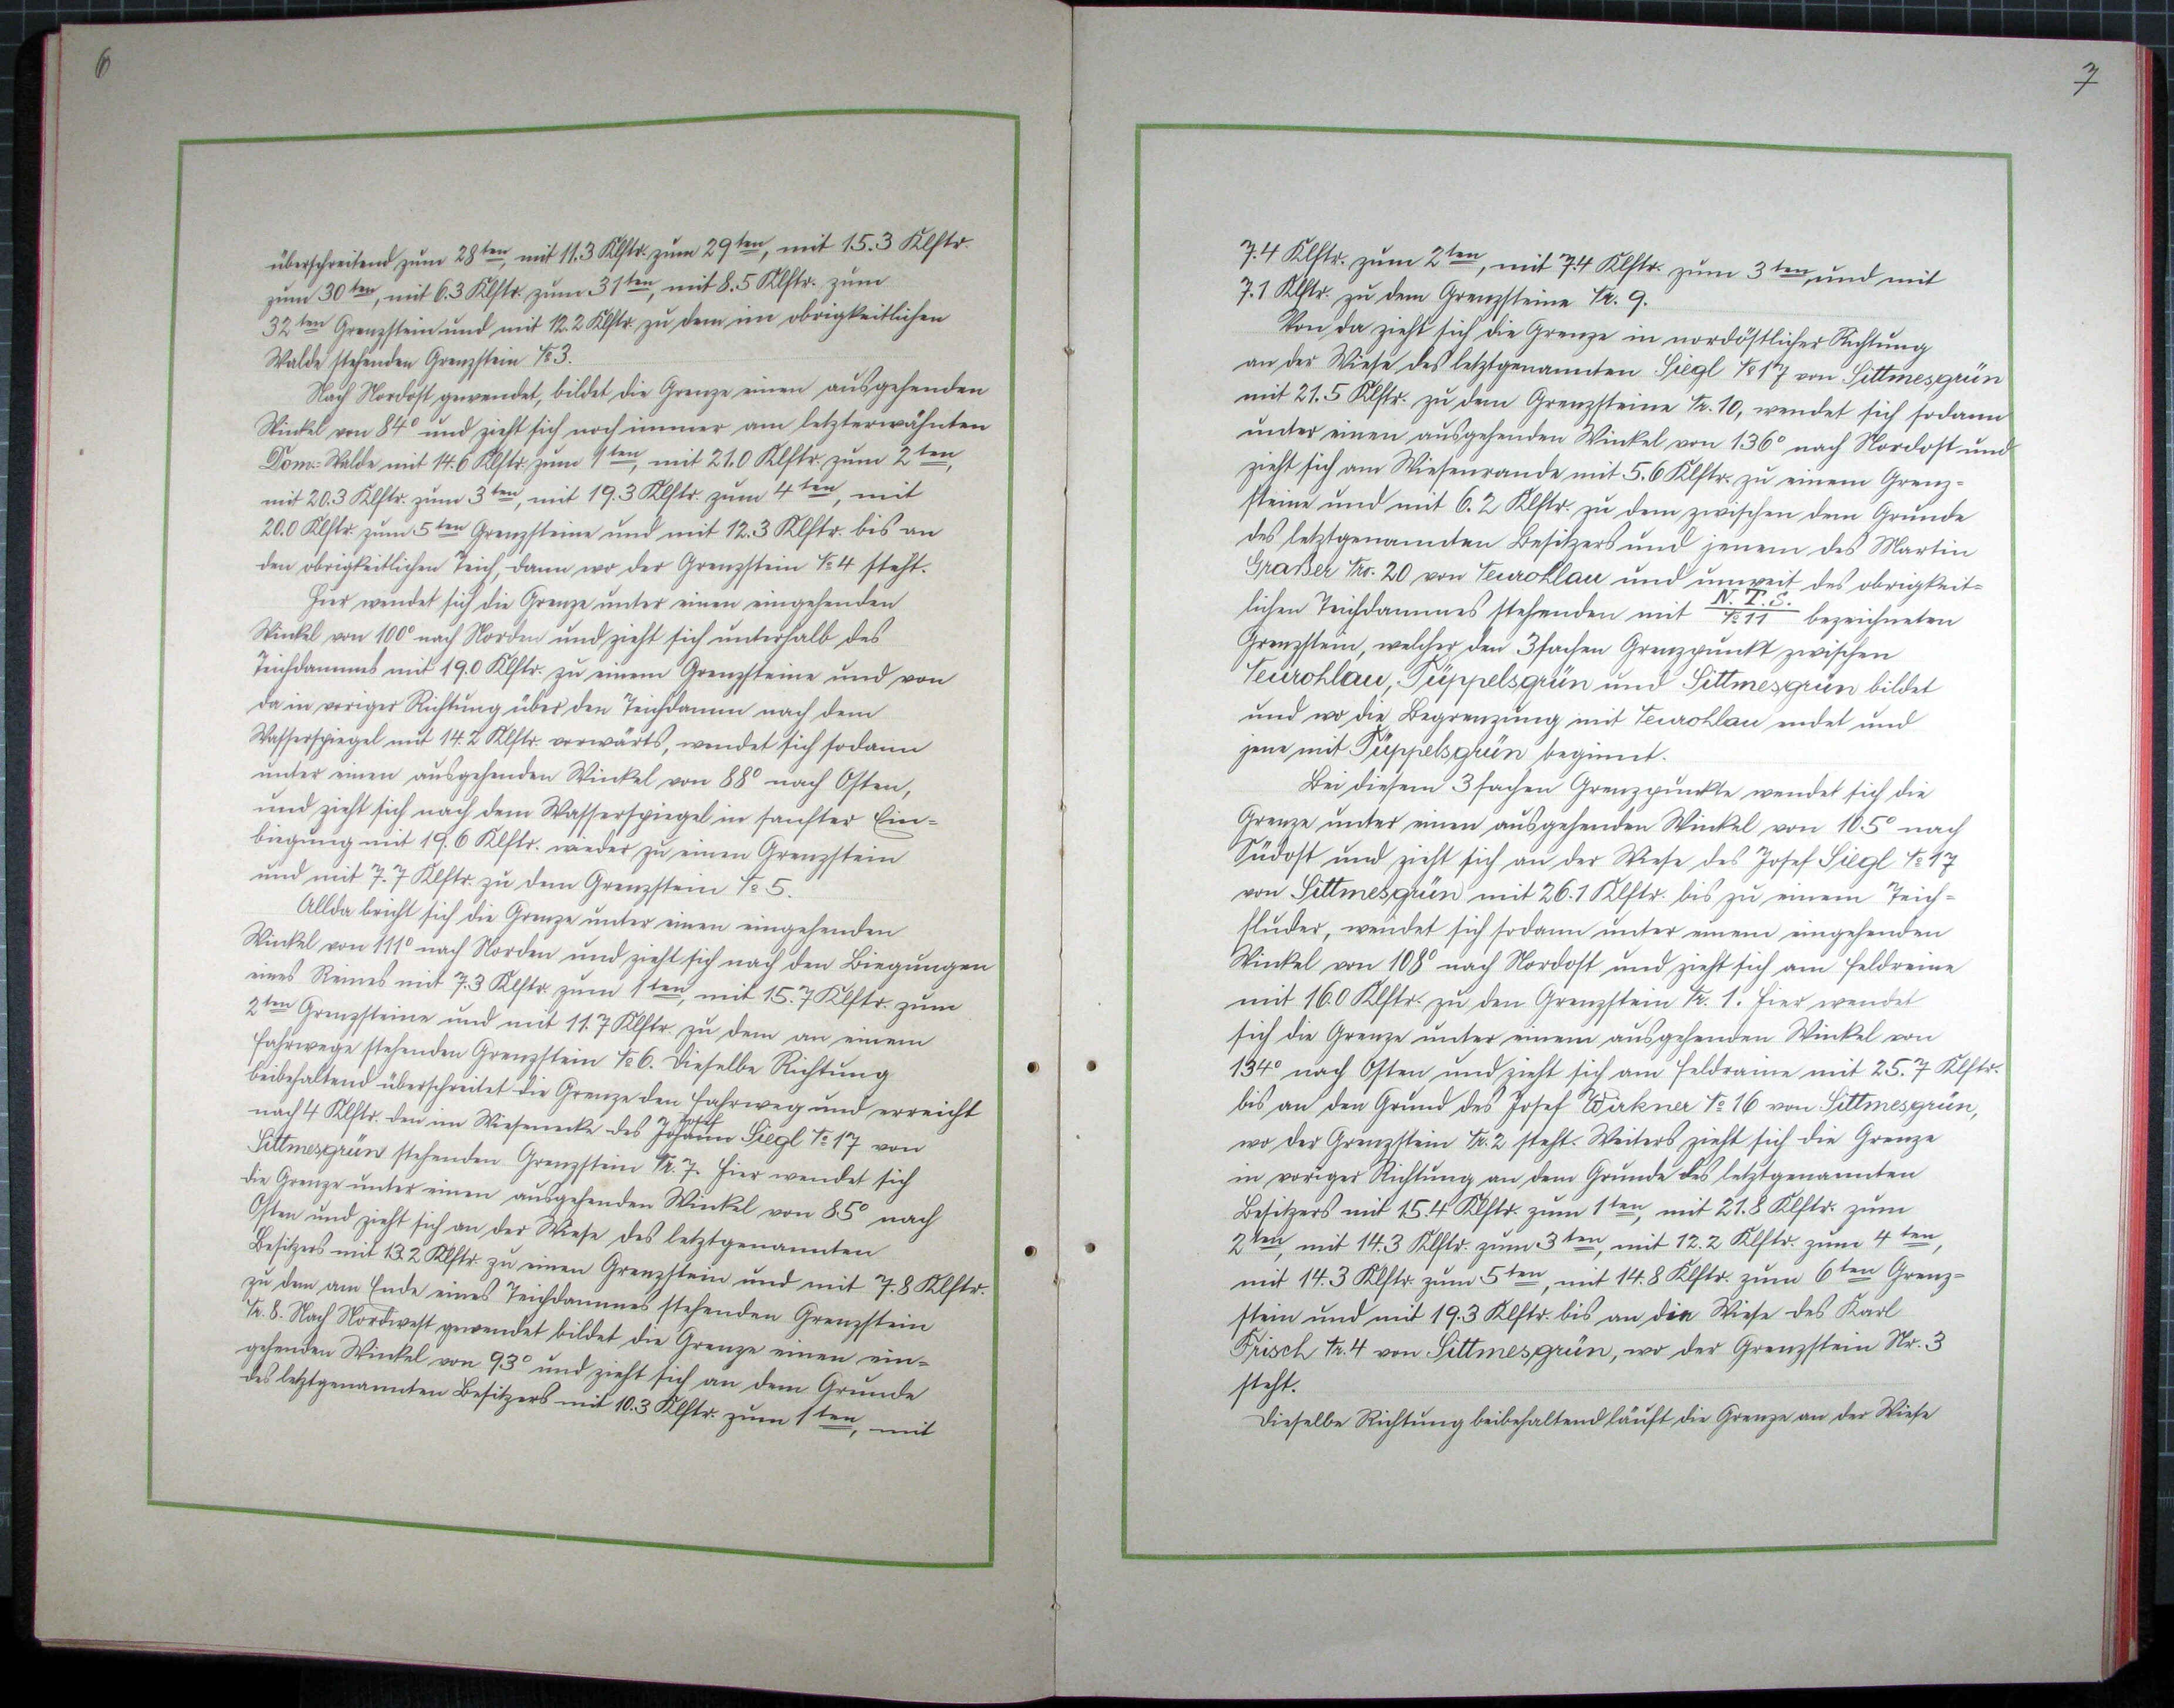 6
überschreitend zum 28ten, mit 11.3 Klftr. zum 29ten, mit 15.3 Klftr.
zum 30ten, mit 6.3 Klftr. zum 31ten, mit 8.5 Klftr. zum
32ten Grenzstein und mit 12.2 Klftr. zu dem im obrigkeitlichen
Walde stehenden Grenzstein № 3.
Nach Nordost gewendet, bildet die Grenze einen ausgehenden
Winkel von 84° und zieht sich noch immer am letzterwähnten
Dom.-Walde mit 14.6 Klftr. zum 1ten, mit 21.0 Klftr. zum 2ten,
mit 20.3 Klftr. zum 3ten, mit 19.3 Klftr. zum 4ten, mit
20.0 Klftr. zum 5ten Grenzsteine und mit 12.3 Klftr. bis an
den obrigkeitlichen Teich, dann wo der Grenzstein № 4 steht.
Hier wendet sich die Grenze unter einen eingehenden
Winkel von 100° nach Norden und zieht sich unterhalb des
Teichdammes mit 19.0 Klftr. zu einem Grenzsteine und von
da in voriger Richtung über den Teichdamm nach dem
Wasserspiegel mit 14.2 Klftr. vorwärts, wendet sich sodann
unter einen ausgehenden Winkel von 88° nach Osten,
und zieht sich nach dem Wasserspiegel in sanfter Ein=
biegung mit 19.6 Klftr. wieder zu einen Grenzstein
und mit 7.7 Klftr. zu dem Grenzstein № 5.
Allda bricht sich die Grenze unter einen eingehenden
Winkel von 111° nach Norden und zieht sich nach den Biegungen
eines Reines mit 7.3 Klftr. zum 1ten, mit 15.7 Klftr. zum
2ten Grenzsteine und mit 11.7 Klftr. zu dem an einem
Fahrwege stehenden Grenzstein № 6. Dieselbe Richtung
beibehaltend überschreitet die Grenze den Fahrweg und erreicht
nach 4 Klftr. den im Wiesenecke des Johann Josef Siegl № 17 von
Sittmesgrün stehenden Grenzstein Nr. 7. Hier wendet sich
die Grenze unter einen ausgehenden Winkel von 85° nach
Osten und zieht sich an der Wiese des letztgenannten
Besitzers mit 13.2 Klftr. zu einen Grenzstein und mit 7.8 Klftr.
zu dem am Ende eines Teichdammes stehenden Grenzstein
Nr. 8. Nach Nordwest gewendet bildet die Grenze einen ein=
gehenden Winkel von 93° und zieht sich an dem Grunde
des letztgenannten Besitzers mit 10.3 Klftr. zum 1ten, mit
7
7.4 Klftr. zum 2ten, mit 7.4 Klftr. zum 3ten und mit
7.1 Klftr. zu dem Grenzsteine Nr. 9.
Von da zieht sich die Grenze in nordöstlicher Richtung
an der Wiese des letztgenannten Siegl № 17 von Sittmesgrün
mit 21.5 Klftr. zu dem Grenzsteine Nr. 10, wendet sich sodann
unter einen ausgehenden Winkel von 136° nach Nordost und
zieht sich am Wiesenrande mit 5.6 Klftr. zu einem Grenz=
steine und mit 6.2 Klftr. zu dem zwischen dem Grunde
des letztgenannten Besitzers und jenem des Martin
Graßer Nro. 20 von Neurohlau und unweit des obrigkeit=
lichen Teichdammes stehenden mit N. T. S. / № 11 bezeichneten
Grenzstein, welcher den 3fachen Grenzpunkt zwischen
Neurohlau, Tüppelsgrün und Sittmesgrün bildet
und wo die Begrenzung mit Neurohlau endet und
jene mit Tüppelsgrün beginnt.
Bei diesem 3fachen Grenzpunkte wendet sich die
Grenze unter einen ausgehenden Winkel von 105° nach
Südost und zieht sich an der Wiese des Josef Siegl № 17
von Sittmesgrün mit 26.1 Klftr. bis zu einem Teich=
fluder, wendet sich sodann unter einem eingehenden
Winkel von 108° nach Nordost und zieht sich am Feldreine
mit 16.0 Klftr. zu den Grenzstein Nr. 1. Hier wendet
sich die Grenze unter einem ausgehenden Winkel von
134° nach Osten und zieht sich am Feldraine mit 25.7 Klftr.
bis an den Grund des Josef Wirkner № 16 von Sittmesgrün,
wo der Grenzstein Nr. 2 steht. Weiters zieht sich die Grenze
in voriger Richtung an dem Grunde des letztgenannten
Besitzers mit 15.4 Klftr. zum 1ten, mit 21.8 Klftr. zum
2ten, mit 14.3 Klftr. zum 3ten, mit 12.2 Klftr. zum 4ten,
mit 14.3 Klftr. zum 5ten, mit 14.8 Klftr. zum 6ten Grenz=
stein und mit 19.3 Klftr. bis an die Wiese des Karl
Frisch Nr. 4 von Sittmesgrün, wo der Grenzstein Nr. 3
steht.
Dieselbe Richtung beibehaltend läuft die Grenze an der Wiese